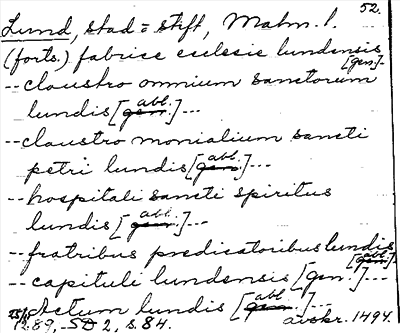 52.
Lund, stad = stift, Malm. l.
(forts.) fabrice ecclesie lundensis
[gen.]
-- claustro omnium sanctorum
lundis [gen. abl.] ---
-- claustro monialium sancti
petri lundis [gen. abl.] ---
-- hospitali sancti spiritus
lundis [gen. abl.] ---
-- fratribus predicatoribus lundis
[gen. abl.] ---
-- capituli lundensis [gen.] ---
Actum lundis [gen. abl.] ---
1289, SD 2, s. 84. avskr. 1494.